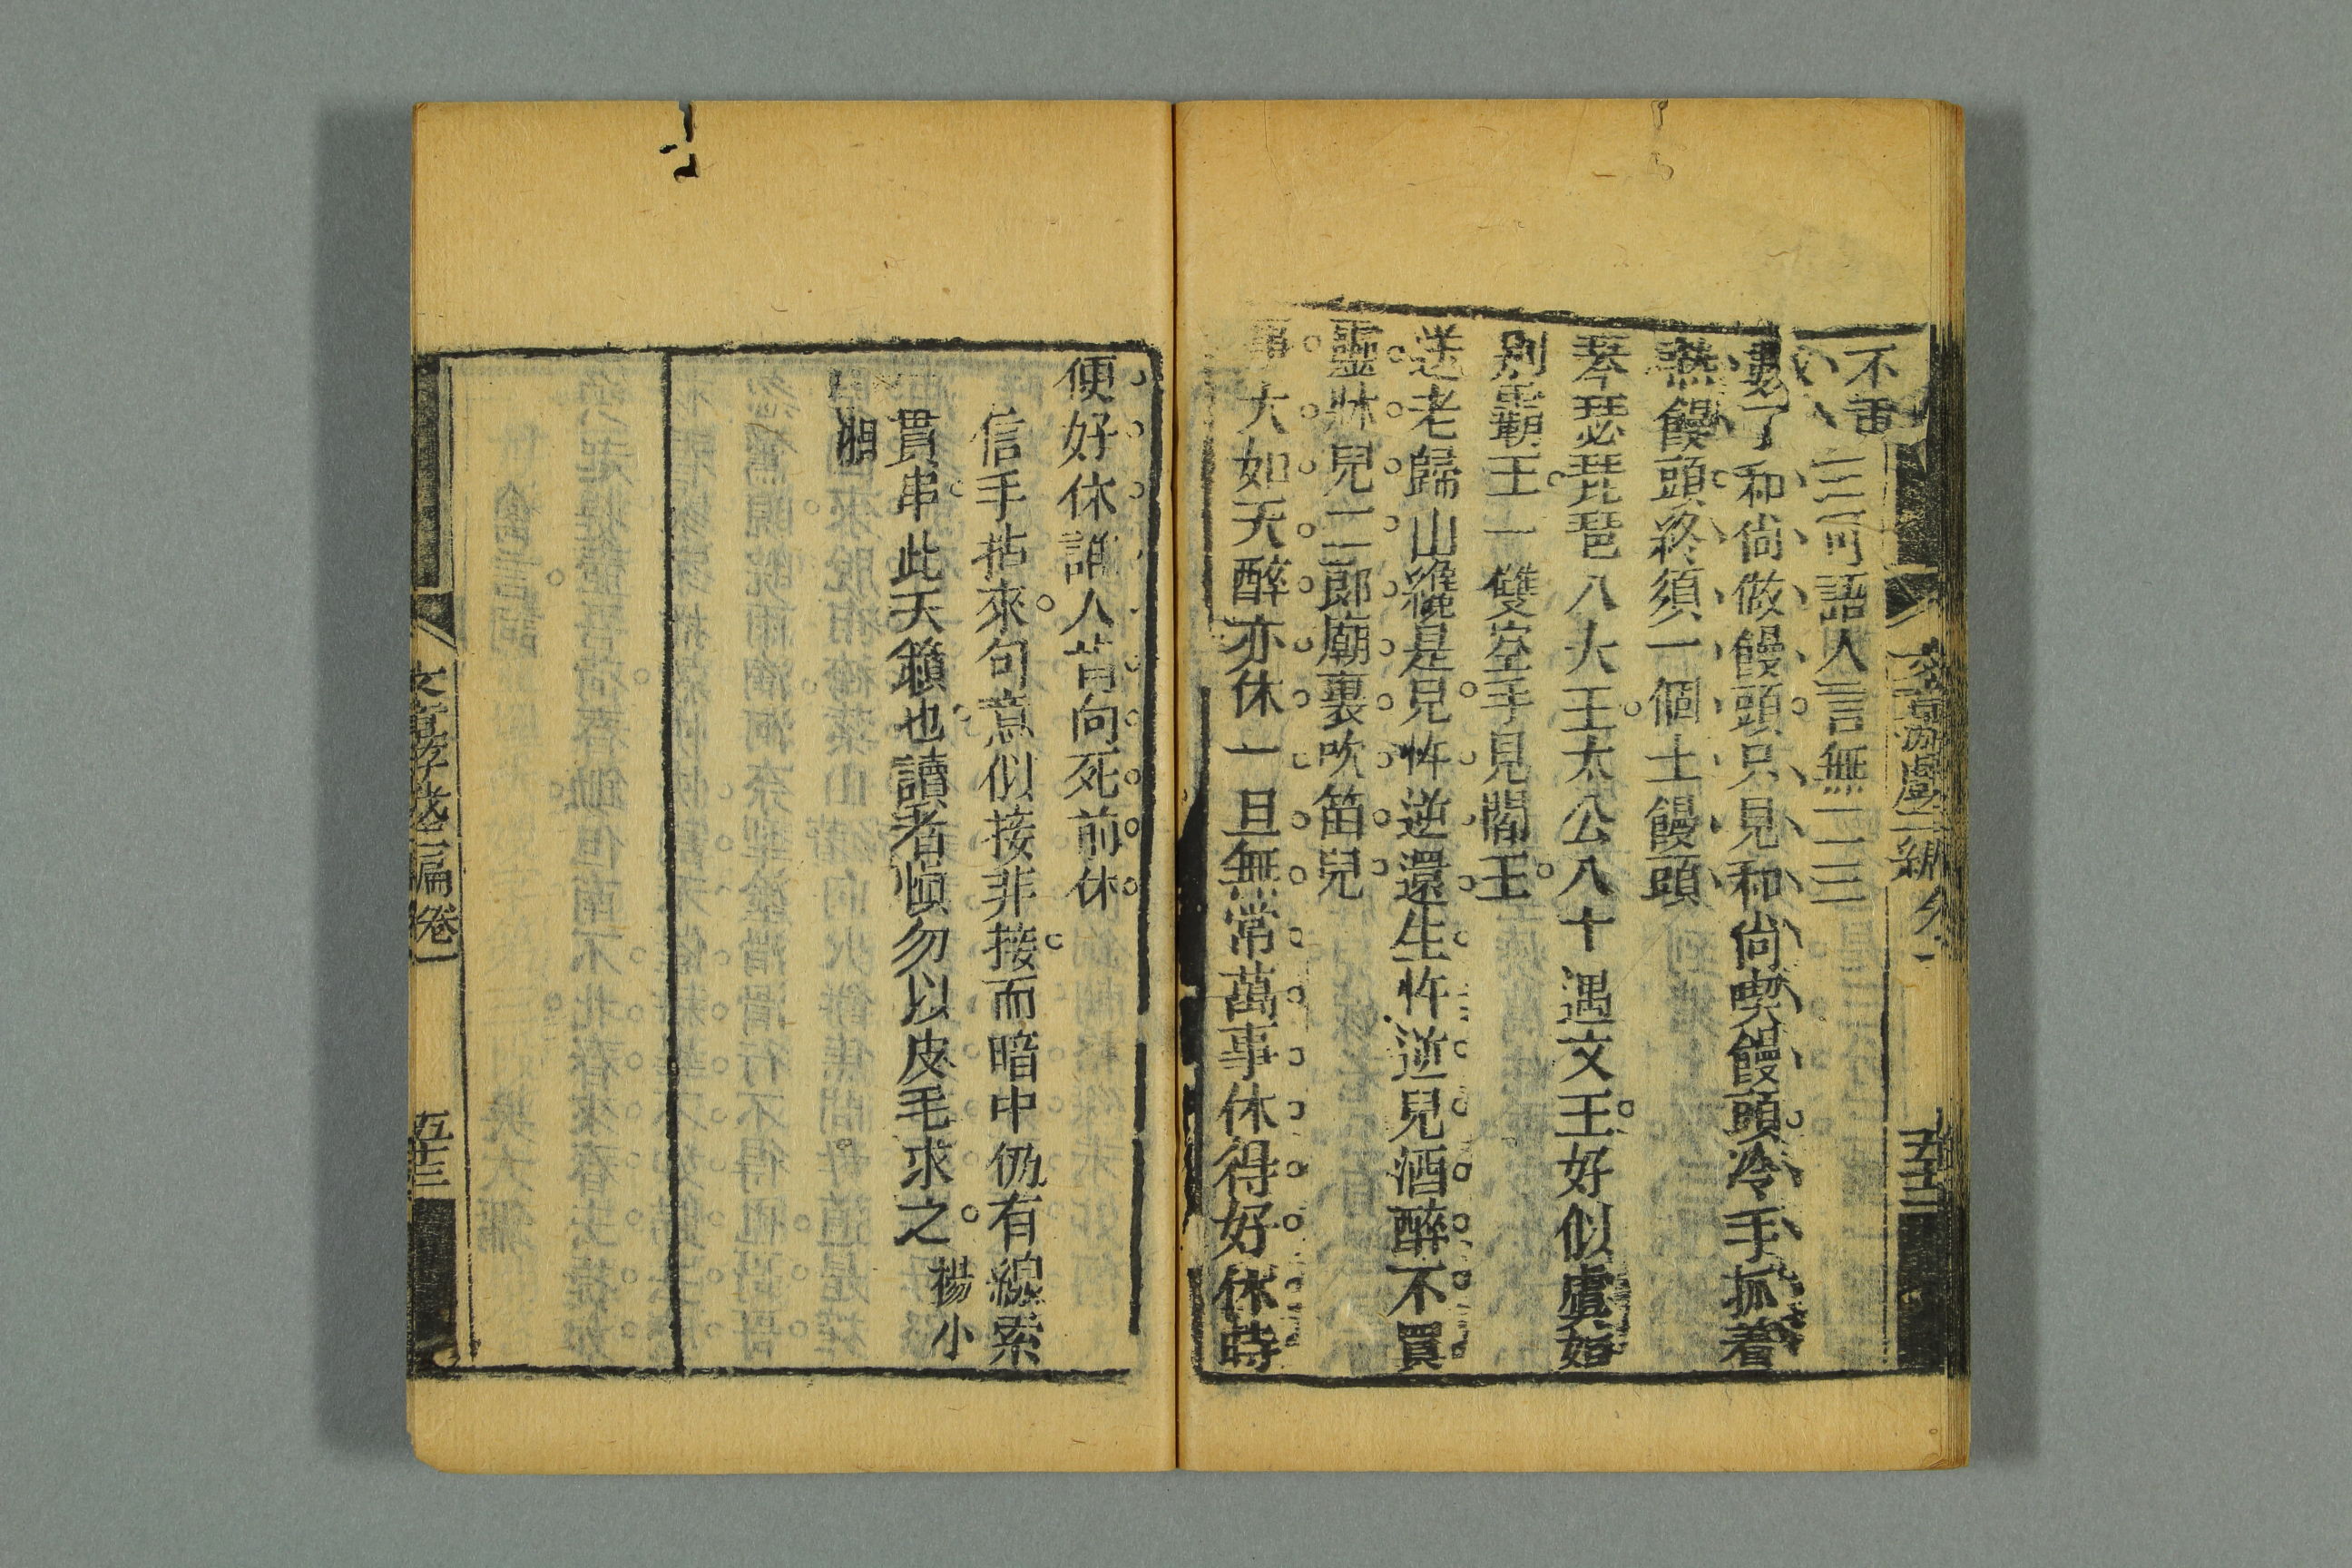 文章游戲二編卷一
五十二
三可語人言無二三
數了和尙做饅頭只見和尙喫饅頭冷手抓着
熱饅頭終須一個土饅頭
琴瑟琵琶八大王太公八十遇文王好似虞姬
別霸王一雙空手見閻王
送老歸山纔是兒忤逆還生忤逆兒酒醉不買
靈牀兒二郎廟裏吹笛兒
事大如天醉亦休一旦無常萬事休得好休時
便好休誰人肯向死前休
信手拈來句意似接非接而暗中仍有線索
貫串此天籟也讀者愼勿以皮毛求之 楊小
湘
文章游戲二編卷一
五十三